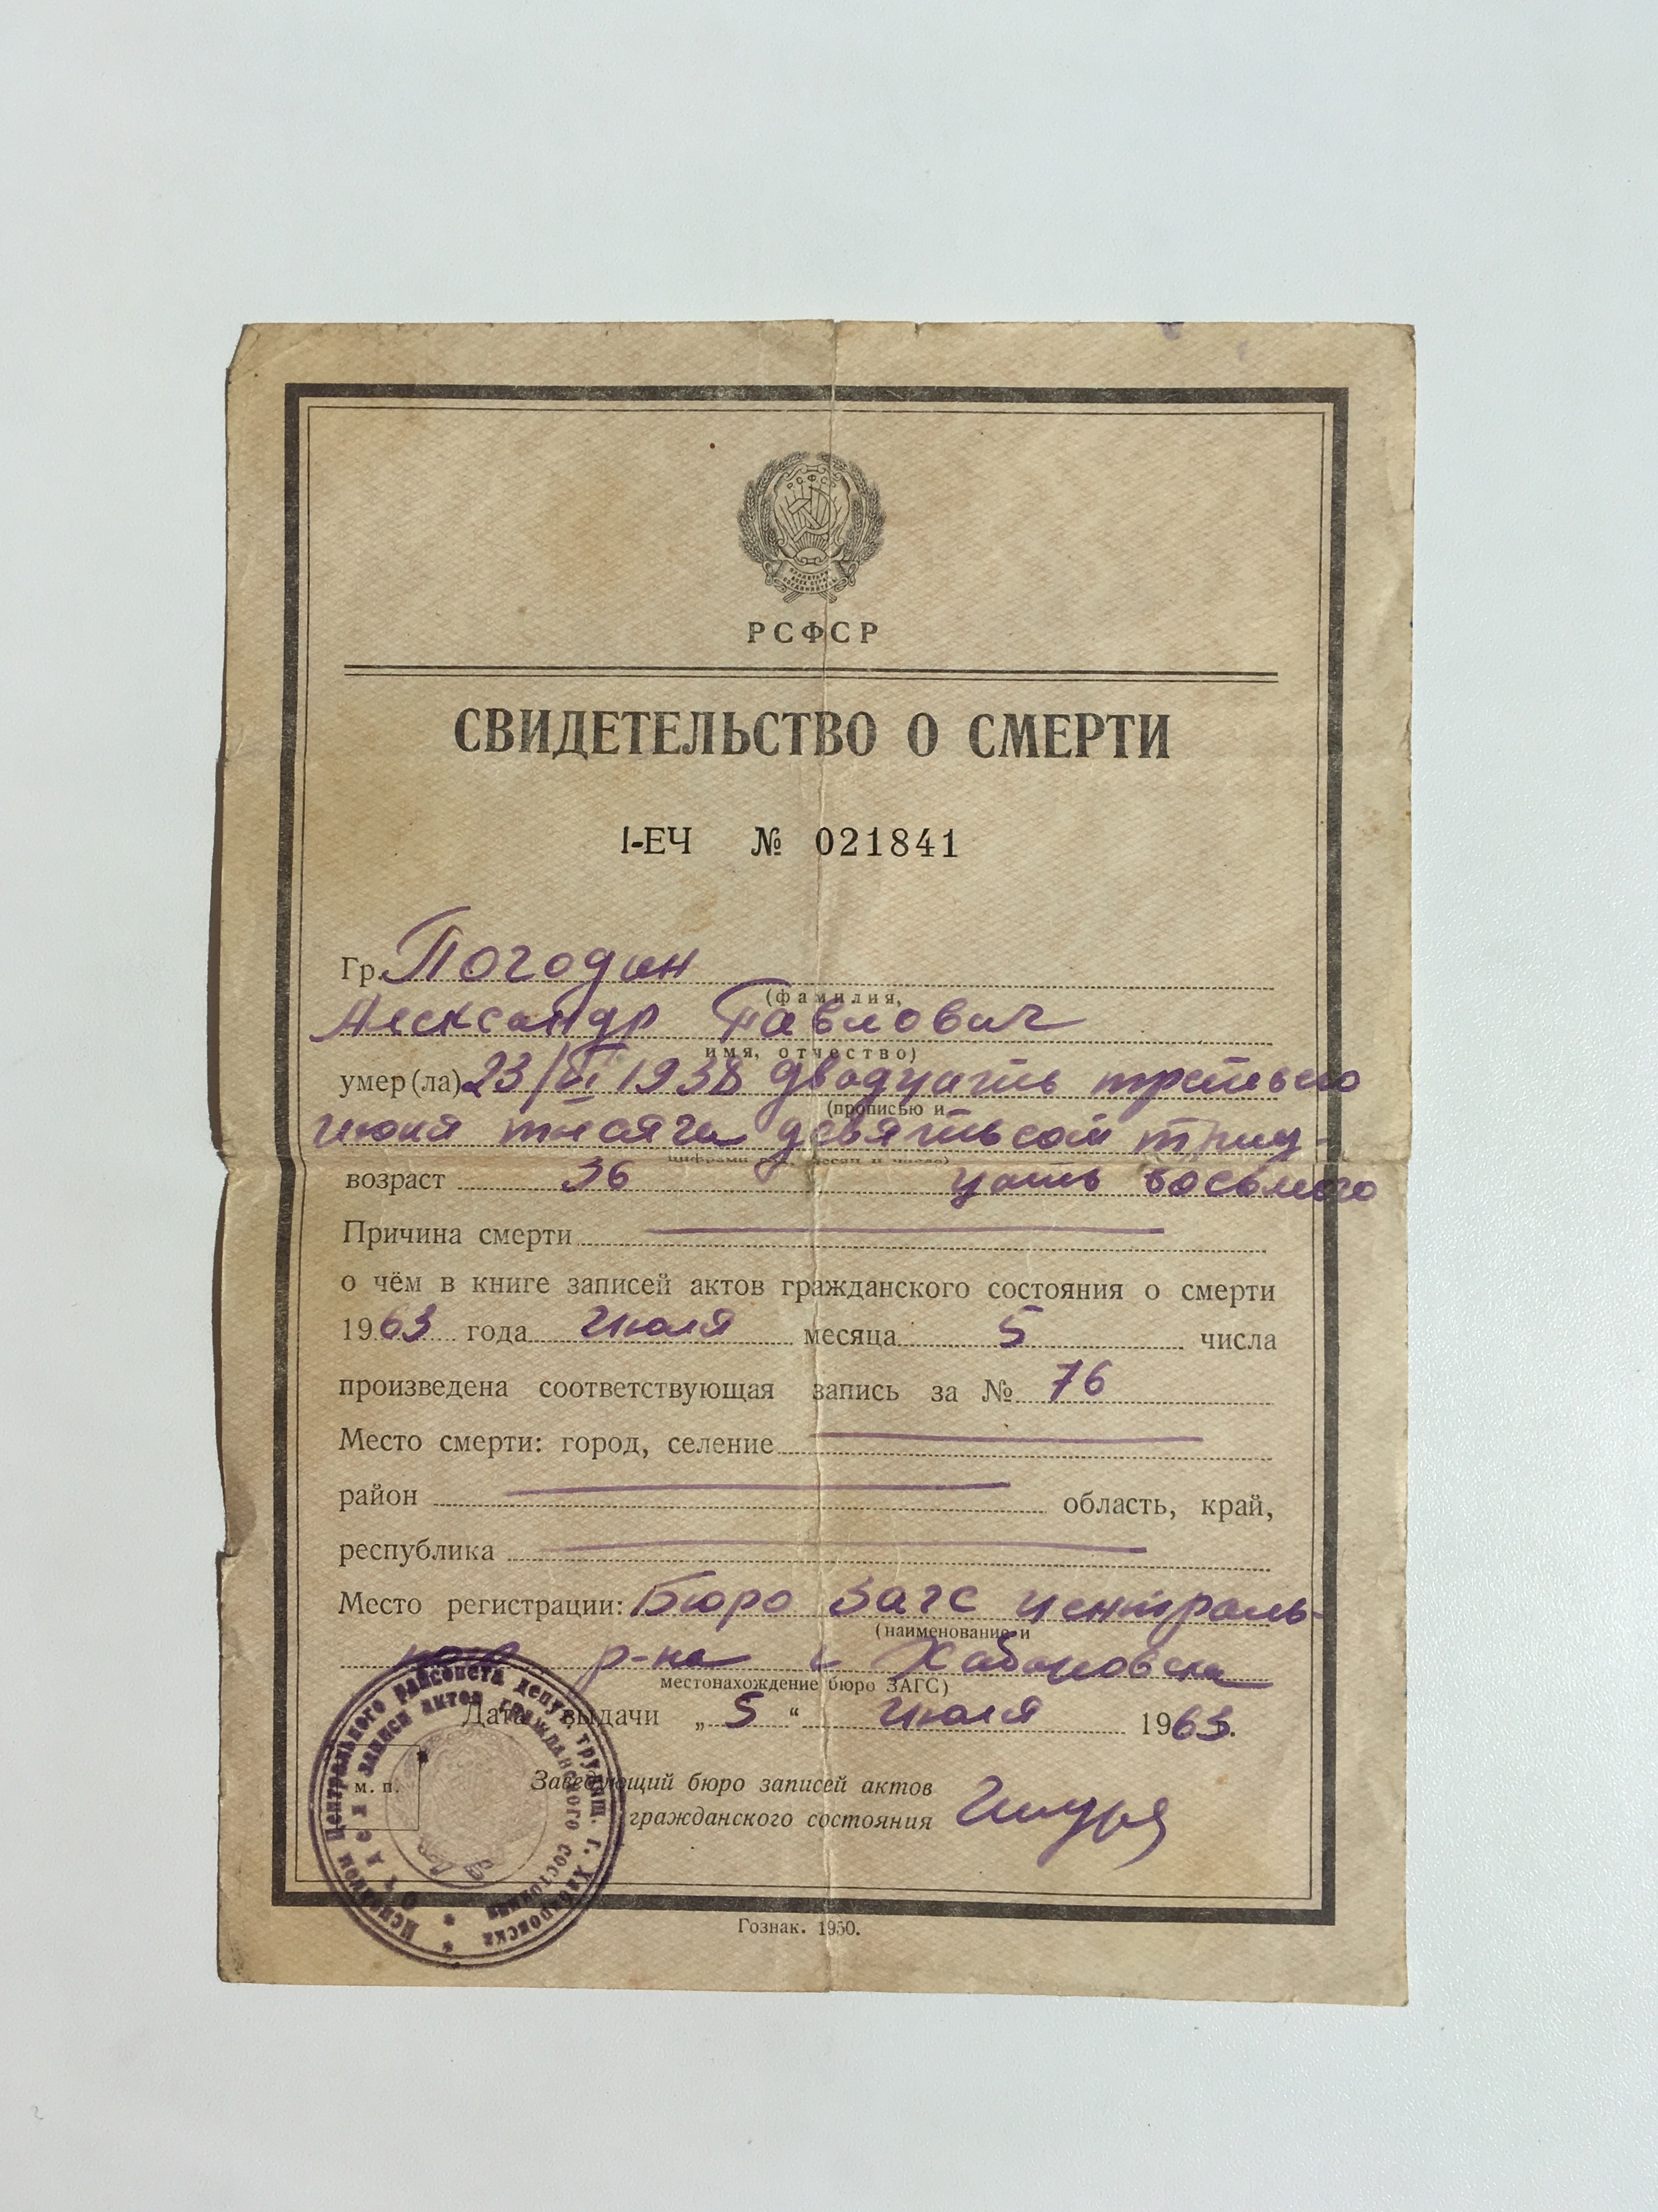 РСФСР
РСФСР
СВИДЕТЕЛЬСТВО О СМЕРТИ
I-ЕЧ № 021841
Гр. Погодин
(фамилия,
Александр Павлович
имя, отчество)
умер(ла) 23/VI 1938 двадцать третьего
(прописью и
июня тысяча девятьсот трид-
цифрами год, месяц и число)
возраст 36 цать восьмого
Причина смерти
о чём в книге записей актов гражданского состояния о смерти
1963 года Июля месяца 5 числа
произведена соответствующая запись за № 76
Место смерти: город, селение
район область, край,
республика
Место регистрации: Бюро Загс централь-
(наименование и
ного р-на г. Хабаровска
местонахождение бюро ЗАГС)
Дата выдачи „5“ Июля 1963.
м. п.
Заведующий бюро записей актов
гражданского состояния
Исполком Центрального райсовета депут. трудящ. г. Хабаровска
Отдел записи актов гражданского состояния
Гознак. 1950.